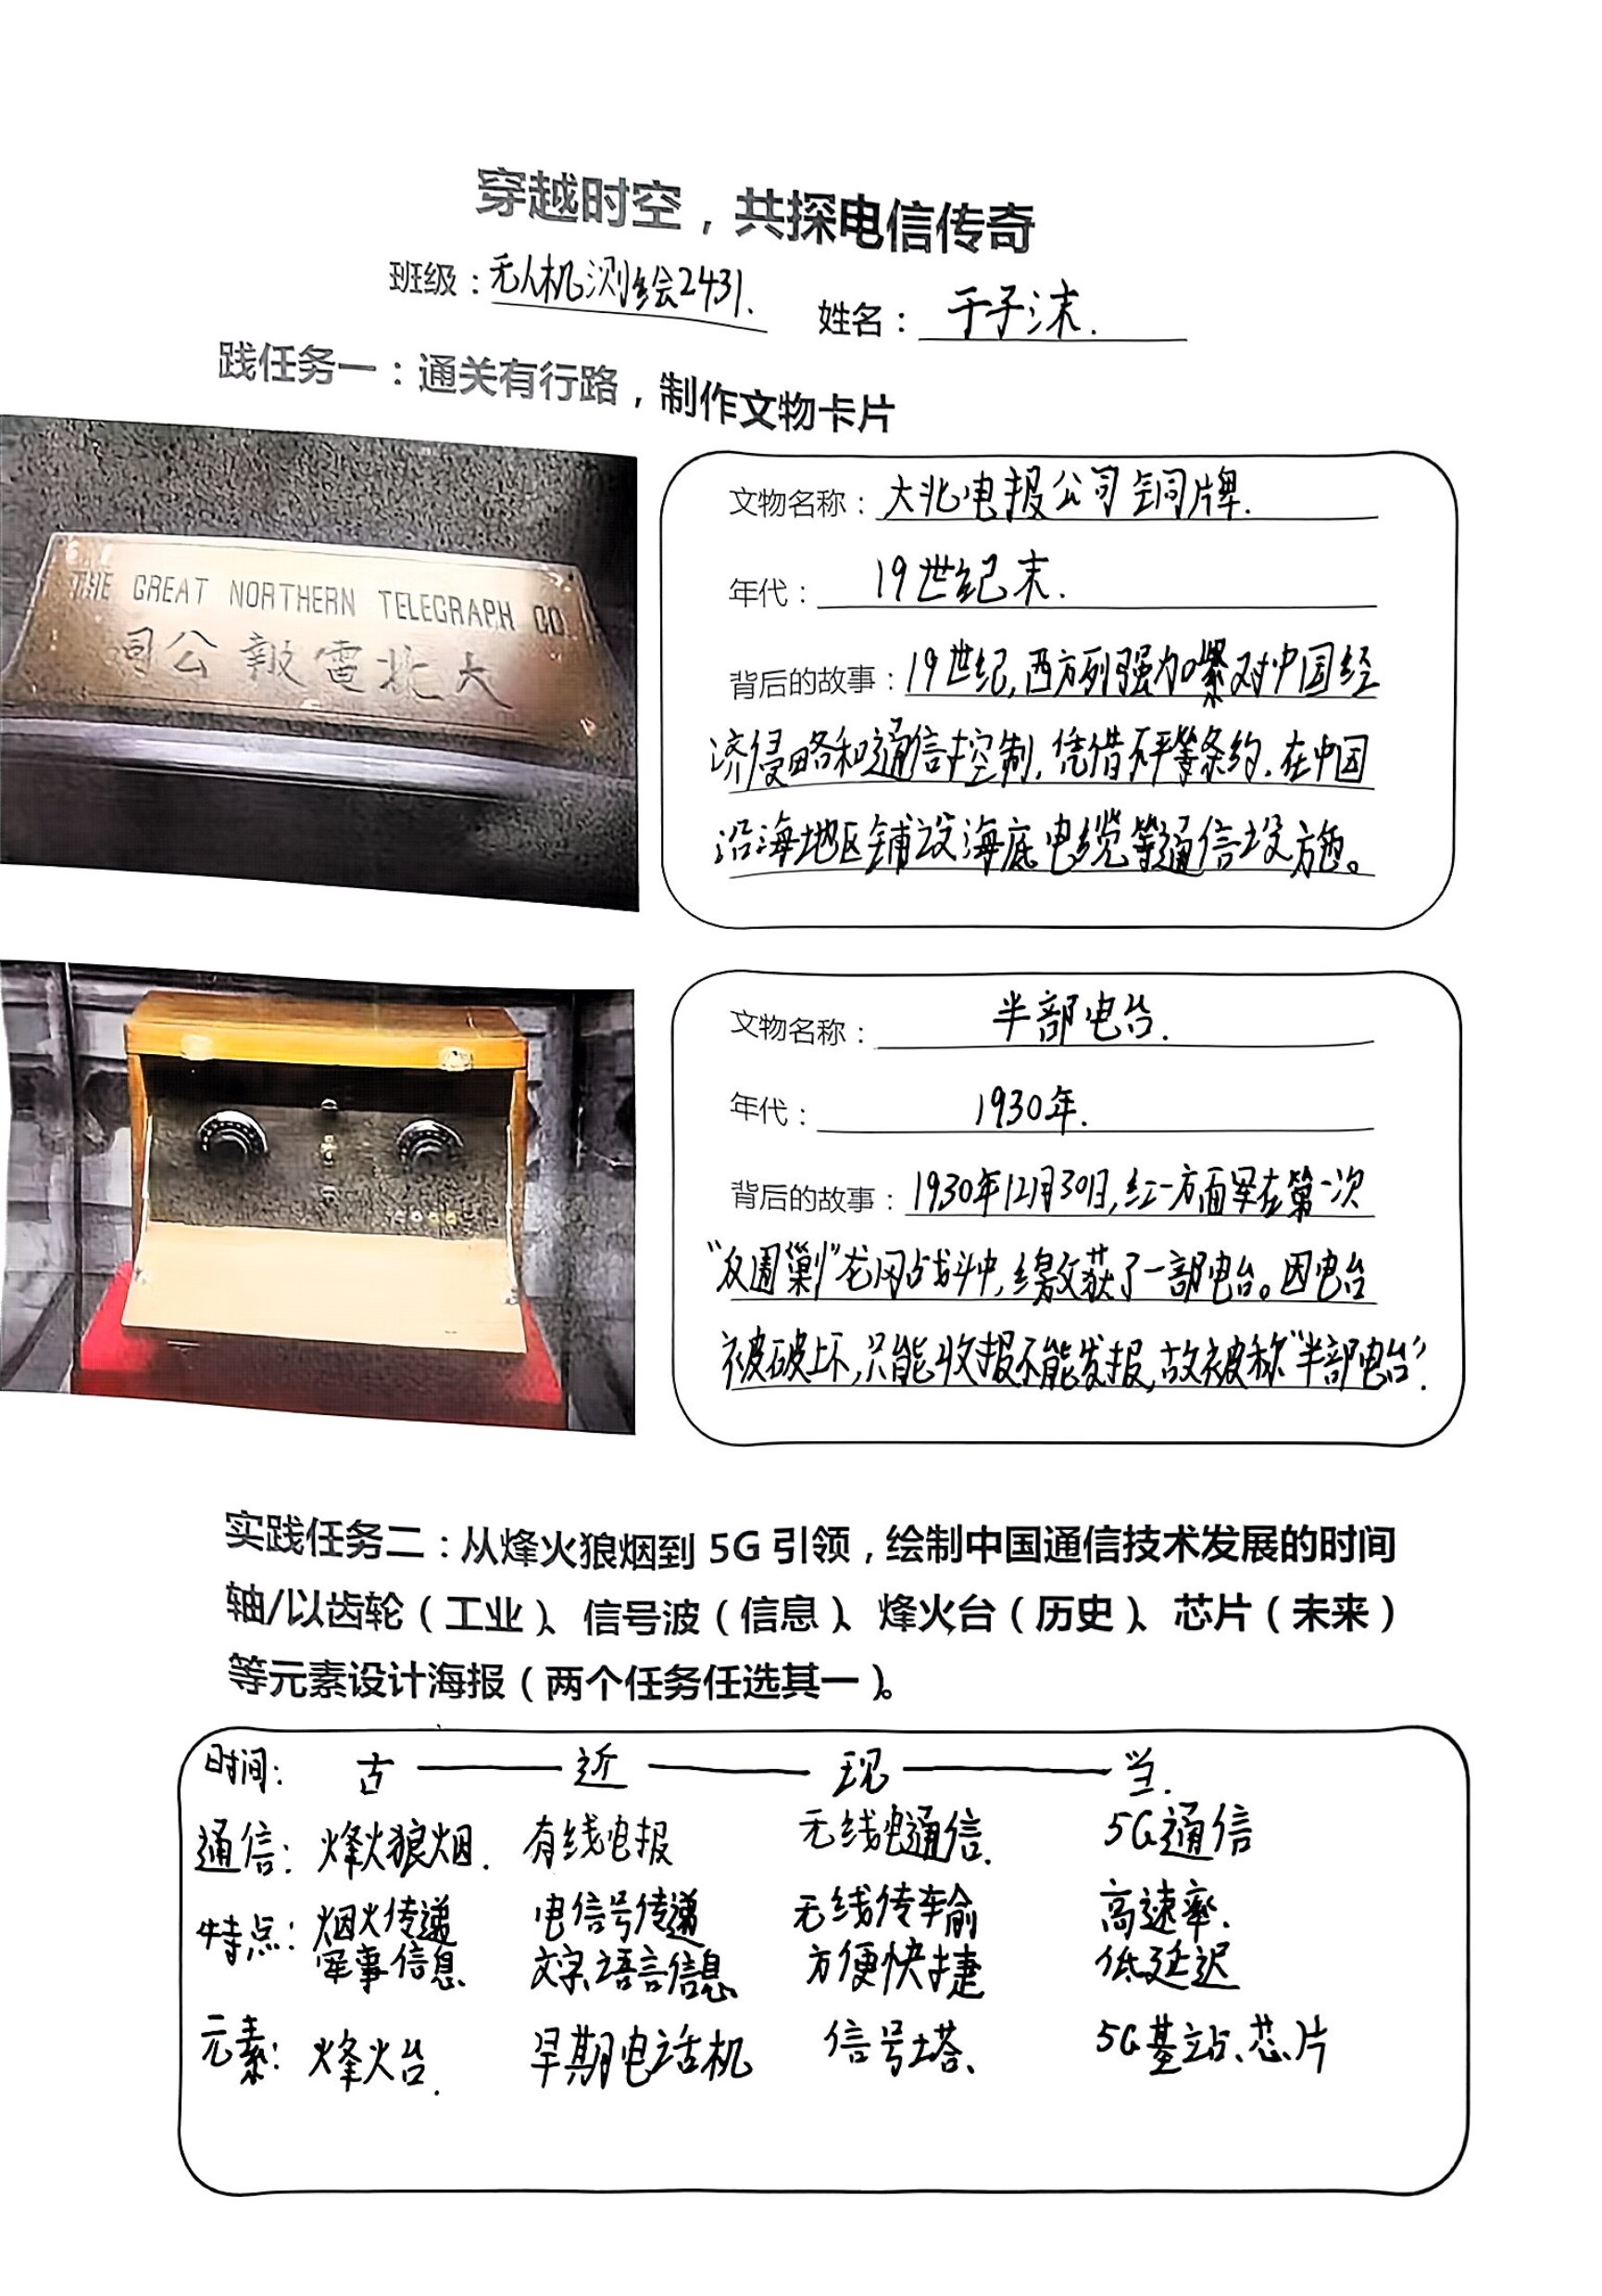 穿越时空，共探电信传奇
班级：无人机测绘2431. 姓名：于子沫.
践任务一：通关有行路，制作文物卡片
THE GREAT NORTHERN TELEGRAPH CO.
司公報電北大
文物名称：大北电报公司铜牌.
年代：19世纪末.
背后的故事：19世纪,西方列强加紧对中国经
济侵略和通信控制,凭借不平等条约,在中国
沿海地区铺设海底电缆等通信设施。
文物名称：半部电台.
年代：1930年.
背后的故事：1930年12月30日,红一方面军在第一次
“反围剿”龙冈战斗中,缴获了一部电台。因电台
被破坏,只能收报不能发报,故被称“半部电台”.
实践任务二：从烽火狼烟到 5G 引领，绘制中国通信技术发展的时间
轴/以齿轮（工业）、信号波（信息）、烽火台（历史）、芯片（未来）
等元素设计海报（两个任务任选其一）。
时间: 古 —— 近 —— 现 —— 当.
通信: 烽火狼烟. 有线电报 无线电通信. 5G通信
特点: 烟火传递 电信号传递 无线传输 高速率.
军事信息 文字、语言信息 方便快捷 低延迟
元素: 烽火台. 早期电话机 信号塔、 5G基站、芯片